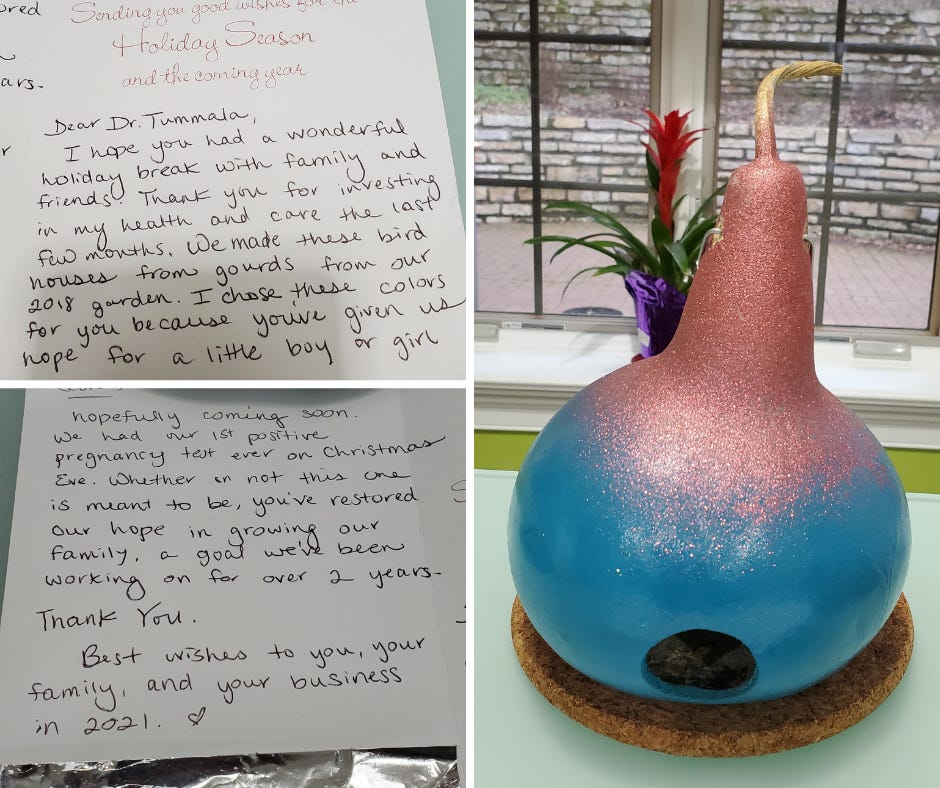 ored
ars.
Sending you good wishes for the
Holiday Season
and the coming year
Dear Dr. Tummala,
I hope you had a wonderful
holiday break with family and
friends! Thank you for investing
in my health and care the last
few months. We made these bird
houses from gourds from our
2018 garden. I chose these colors
for you because you've given us
hope for a little boy or girl
hopefully coming soon.
We had our 1st positive
pregnancy test ever on Christmas
Eve. Whether or not this one
is meant to be, you've restored
our hope in growing our
family, a goal we've been
working on for over 2 years.
Thank You.
Best wishes to you, your
family, and your business
in 2021.